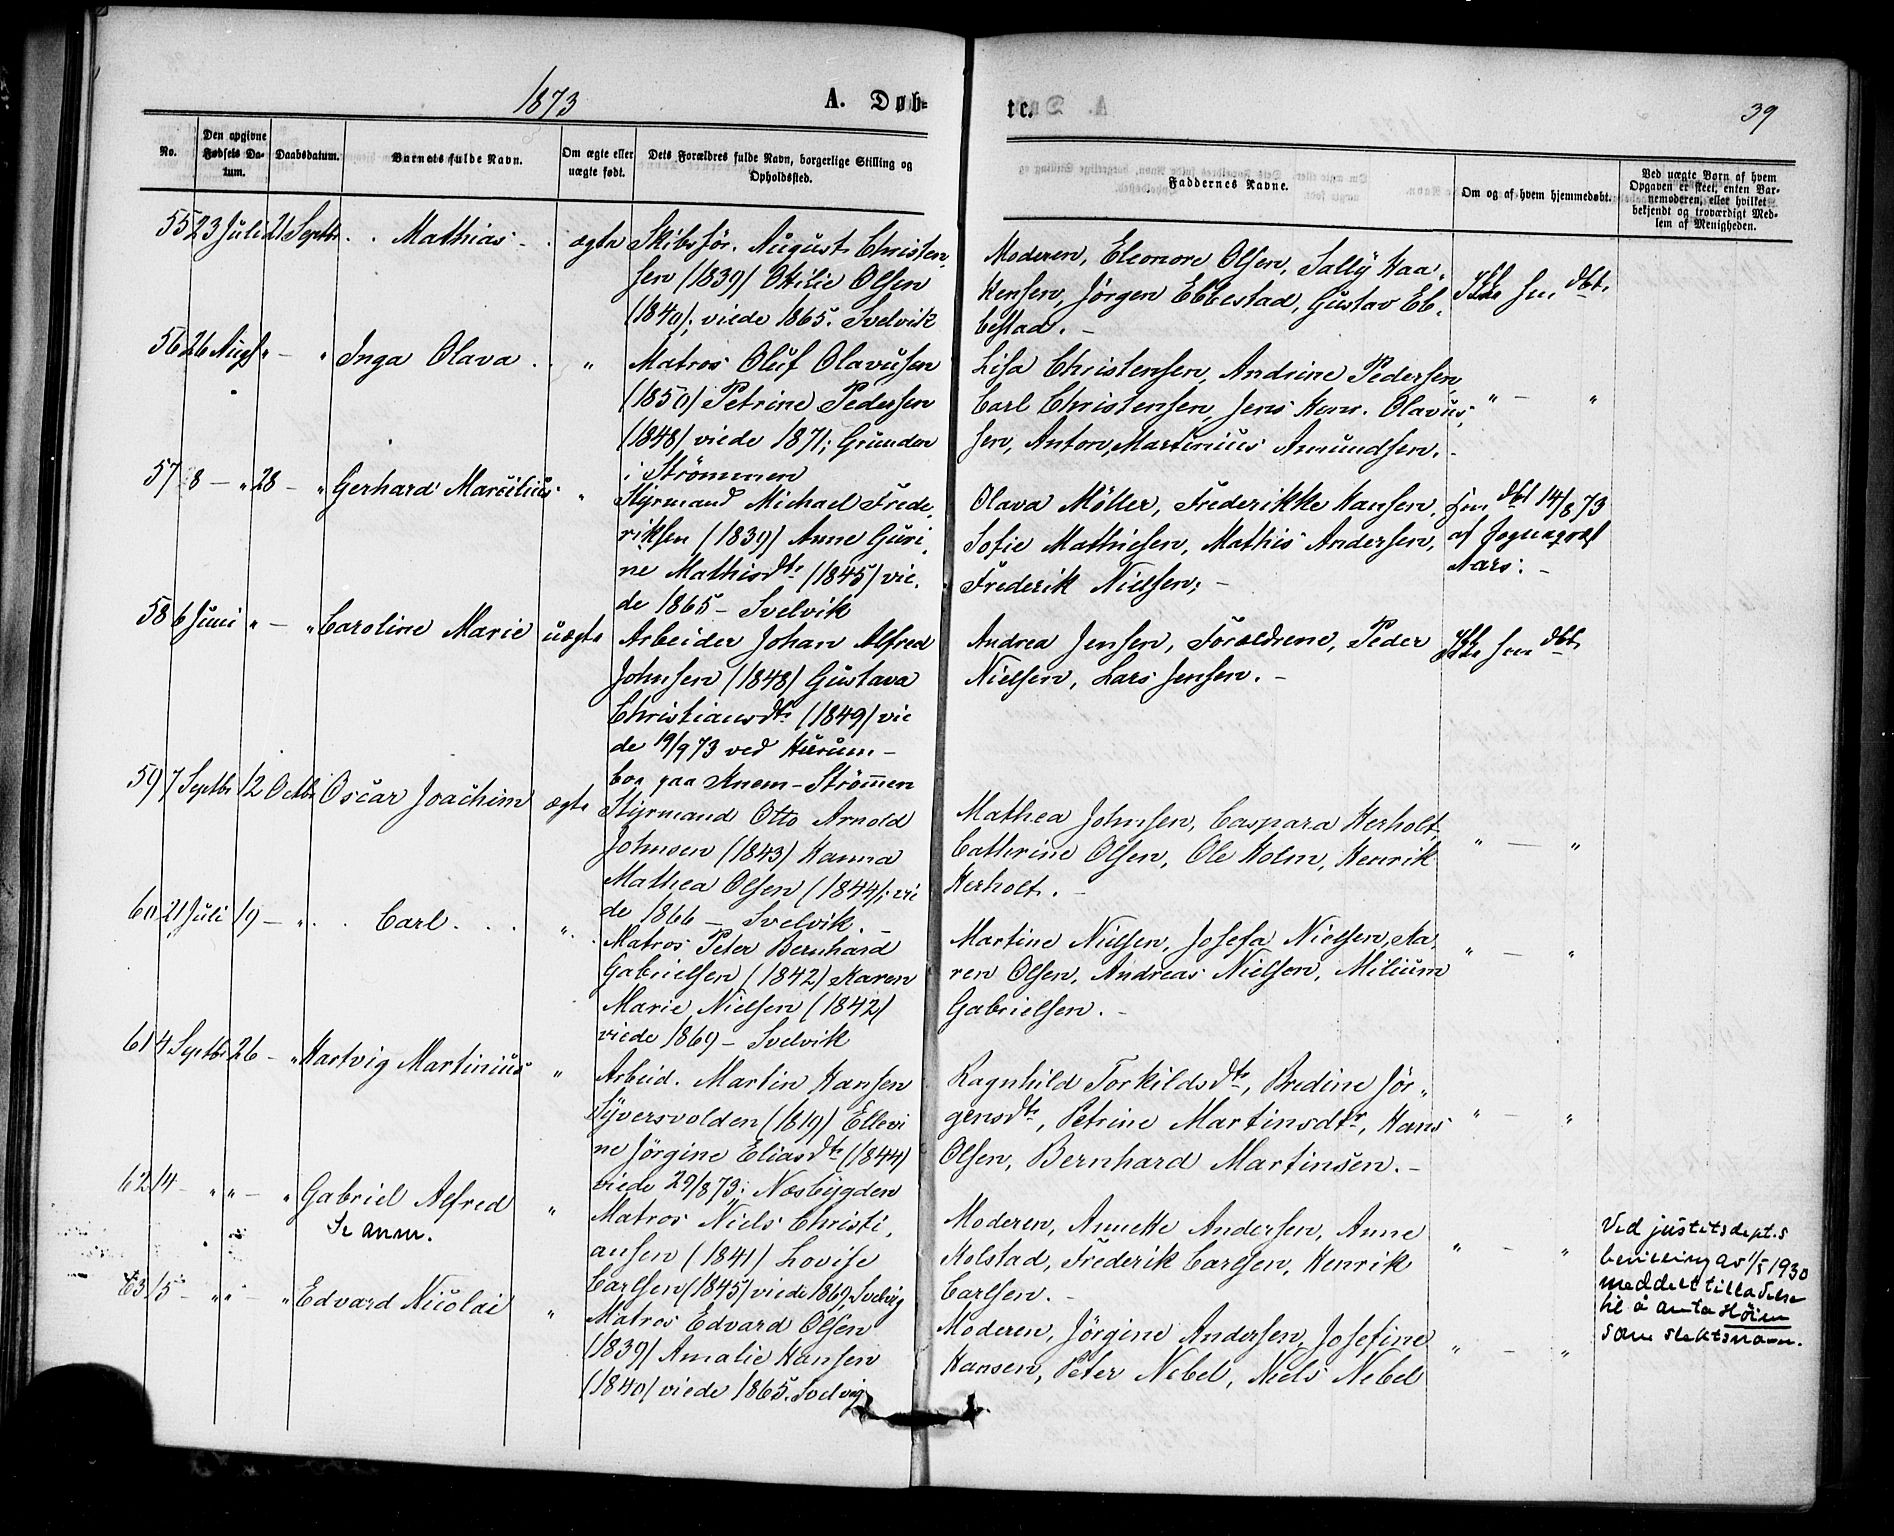 1873 A. Døb-
No.
Den opgivne Fødsels Da-tum.
Daabsdatum.
Barnets fulde Navn.
Om ægte eller uægte født.
Dets Forældres fulde Navn, borgerlige Stilling og Opholdssted.
55 23 Juli 21 Septbr. Mathias ægte Skibsfør. August Christen-
sen (1839) Otilie Olsen
(1840); viede 1865. Svelvik
56 26 Augs " — " Inga Olava " Matros Oluf Olavusen
(1850) Petrine Pedersen
(1848) viede 1871; Grunden
i Strømmen
57 8 — " 28 — " Gerhard Marcilius " Styrmand Michael Frede-
riksen (1839) Anne Guri-
ne Mathisdtr (1845) vie-
de 1865 — Svelvik
58 6 Juni " — " Caroline Marie uægte Arbeider Johan Alfred
Johnsen (1848) Gustava
Christiansdtr (1849) vie
de 19/9 73 ved Hurum —
boe paa Knem-Strømmen
59 7 Septbr 12 Octbr Oscar Joachim ægte Styrmand Otto Arnold
Johnsen (1843) Hanna
Mathea Olsen (1844); vi
de 1866 — Svelvik. —
60 21 Juli 19 — " Carl " Matros Peter Bernhard
Gabrielsen (1842) Karen
Marie Nielsen (1842)
viede 1869 — Svelvik
61 4 Septbr 26 — " Hartvig Martinius " Arbeid. Martin Hansen
Syversvolden (1819) Ellevi
ne Jørgine Eliasdtr (1844)
viede 29/8 73; Næsbygden
62 14 — " " — " Gabriel Alfred " Matros Niels Christi-
Se anm.
ansen (1841) Lovise
Carlsen (1845) viede 1869, Svelvig
63 15 — " " — " Edvard Nicolai " Matros Edvard Olsen
(1839) Amalie Hansen
(1840) viede 1865. Svelvig
te. 39
Faddernes Navne.
Om og af hvem hjemmedøbt.
Ved uægte Børn af hvem
Opgaven er skeet, enten Bar-
nemoderen, eller hvilket
bekjendt og troværdigt Med-
lem af Menigheden.
Moderen, Eleonore Olsen, Sally Haa-
kensen, Jørgen Ebbestad, Gustav Eb- Ikke hm dbt.
bestad. —
Lisa Christensen, Andrine Pedersen
Carl Christensen, Jens Henr. Olavus- " — "
sen, Anton Martinius Amundsen. —
Olava Møller, Frederikke Hansen, hm dbt 14/8 73
Sofie Mathiesen, Mathis Andersen, af Sogneprst
Frederik Nielsen; — Aars. —
Andrea Jensen, Forældrene, Peder Ikke hm dbt
Nielsen, Lars Jensen. —
Mathea Johnsen, Caspara Herholt,
Cathrine Olsen, Ole Holm, Henrik " — "
Herholt. —
Martine Nielsen, Josefa Nielsen, Ka-
ren Olsen, Andreas Nielsen, Milium " — "
Gabrielsen. —
Ragnhild Torkildsdtr, Bredine Jør-
gensdtr, Petrine Martinsdtr, Hans " — "
Olsen, Bernhard Martinsen. —
Moderen, Annette Andersen, Anne
Molstad, Frederik Carlsen, Henrik " — "
Carlsen. —
Ved justitsdept.s
bevilling av 1/5 1930
meddelt tilladelse
til å anta Høien
som slektsnavn.
Moderen, Jørgine Andersen, Josefine
Hansen, Peter Nebel, Niels Nebel " — "